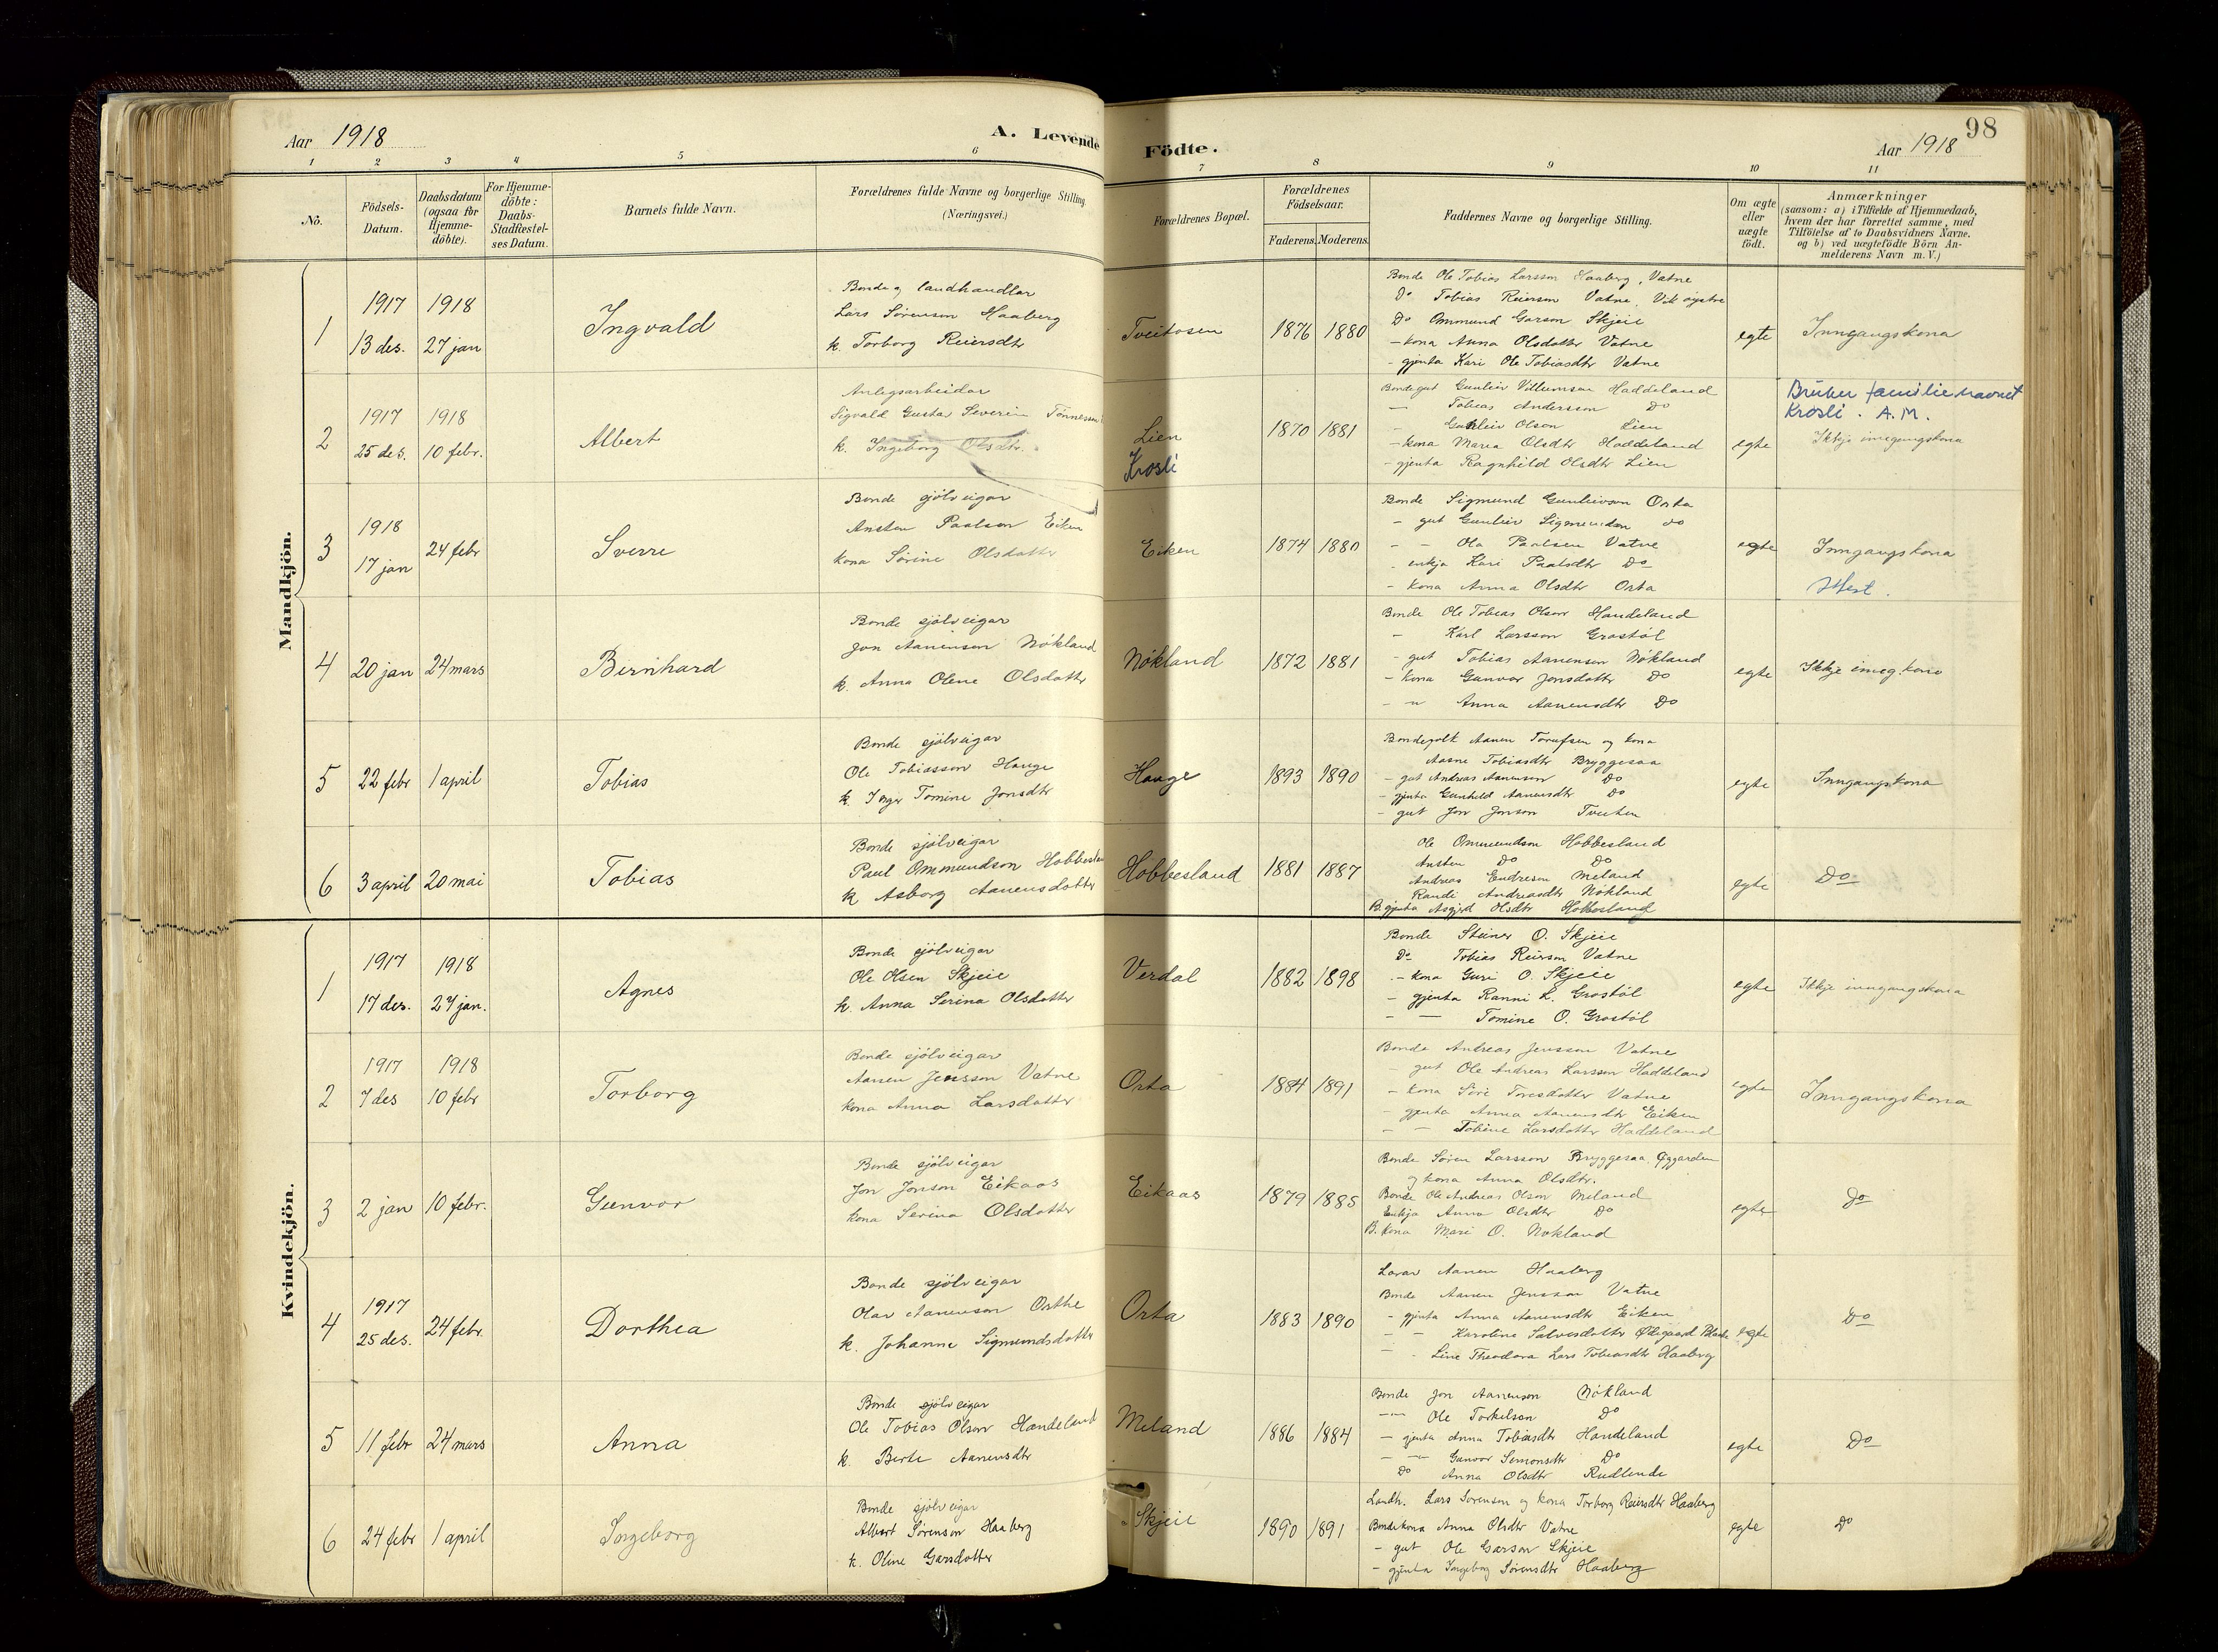 98
Aar 1918
A. Levende Födte.
Aar 1918
1 2 3 4 5 6 7 8 9 10 11
No.
Födsels-Datum.
Daabsdatum (ogsaa for Hjemme-döbte).
For Hjemme-döbte: Daabs-Stadfæstel-ses Datum.
Barnets fulde Navn.
Forældrenes fulde Navne og borgerlige Stilling. (Næringsvei.)
Forældrenes Bopæl.
Forældrenes Födselsaar.
Faderens. Moderens.
Faddernes Navne og borgerlige Stilling.
Om ægte eller uægte födt.
Anmærkninger
(saasom: a) i Tilfælde af Hjemmedaab,
hvem der har forrettet samme, med
Tilföielse af to Daabsvidners Navne.
og b) ved uægtefödte Börn An-
melderens Navn m. V.)
Mandkjön.
1
1917 13 des.
1918 27 jan
Ingvald
Bonde og landhandlar
Lars Sørenson Haaberg
k. Torborg Reiersdtr
Tveitosen
1876 1880
Bonde Ole Tobias Larsson Haaberg, Vatne
Do Tobias Reierson Vatne, Vik øystre
Do Ommund Garson Skjeie
- kona Anna Olsdatter Vatne
- gjenta Kari Ole Tobiasdtr Vatne
egte
Inngangskona
2
1917 25 des.
1918 10 febr.
Albert
Anlegsarbeidar
Sigvald Gustav Severin Tønnesson
k. Ingeborg Olsdtr.
Lien
Krosli
1870 1881
Bondegut Gunleiv Villumson Haddeland
- Tobias Andersson Do
- Gunleiv Olson Lien
- kona Maria Olsdtr Haddeland
- gjenta Ragnhild Olsdtr Lien
egte
Bruker familienavnet
Krosli. A.M.
Ikkje inngangskona
3
1918 17 jan
24 febr
Sverre
Bonde sjölveigar
Ansten Paalson Eiken
kona Sørine Olsdatter
Eiken
1874 1880
Bonde Sigmund Gunleivson Orta
- gut Gunleiv Sigmundson do
- - Ola Paalsen Vatne
- enkja Kari Paalsdtr Do
- kona Anna Olsdtr Orta
egte
Inngangskona
Attest.
4
20 jan
24 mars
Bernhard
Bonde sjölveigar
Jon Aanenson Nökland
k. Anna Olene Olsdatter
Nökland
1872 1881
Bonde Ole Tobias Olson Handeland
- Karl Larsson Grostöl
- gut Tobias Aanenson Nökland
- kona Gunvor Jonsdatter Do
- " Anna Aanensdtr Do
egte
Ikkje inneg.kona
5
22 febr
1 april
Tobias
Bonde sjölveigar
Ole Tobiasson Hauge
k. Inger Tomine Jonsdtr
Hauge
1893 1890
Bondefolk Aanen Torufsen og kona
Aasne Tobiasdtr Bryggesaa
- gut Andreas Aanenson Do
- gjenta Gunhild Aanensdtr Do
- gut Jon Jonson Tveiten
egte
Inngangskona
6
3 april
20 mai
Tobias
Bonde sjölveigar
Paul Ommundson Hobbesland
k Asborg Aanensdatter
Hobbesland
1881 1887
Ole Ommundson Hobbesland
Ansten Do Do
Andreas Endreson Meland
Randi Andreasdtr Nökland
B. gjenta Asgjerd Olsdtr Hobbesland
egte
Do
Kvindekjön.
1
1917 17 des.
1918 27 jan.
Agnes
Bonde sjölveigar
Ole Olsen Skjeie
k. Anna Serina Olsdatter
Verdal
1882 1898
Bonde Steiner O. Skjeie
Do Tobias Reierson Vatne
- kona Guri O. Skjeie
- gjenta Ranni L. Grostöl
- - Tomine O. Grostöl
egte
Ikkje inngangskona
2
1917 7 des
1918 10 febr
Torborg
Bonde sjölveigar
Aanen Jensson Vatne
kona Anna Larsdatter
Orta
1884 1891
Bonde Andreas Jensson Vatne
- gut Ole Andreas Larsson Haddeland
- kona Siri Toresdatter Vatne
- gjenta Anna Aanensdtr Eiken
- - Tobine Larsdatter Haddeland
egte
Inngangskona
3
2 jan
10 febr.
Gunvor
Bonde sjölveigar
Jon Jonson Eikaas
kona Serina Olsdatter
Eikaas
1879 1885
Bonde Søren Larsson Bryggesaa, Øygarden
og kona Anna Olsdtr.
Bonde Ole Andreas Olson Meland
Enkja Anna Olsdtr Do
B. kona Mari O. Nökland
egte
Do
4
1917 25 des.
24 febr.
Dorthea
Bonde sjölveigar
Olav Aanenson Orthe
k. Johanne Sigmundsdatter
Orta
1883 1890
Lærar Aanen Haaberg
Bonde Aanen Jensson Vatne
- gjenta Anna Aanensdtr Eiken
- - Karoline Salvesdatter Ødegaard
- - Line Theodora Lars Tobiasdtr Haaberg
egte
Do
5
11 febr
24 mars
Anna
Bonde sjölveigar
Ole Tobias Olson Handeland
k. Berte Aanensdtr
Meland
1886 1884
Bonde Jon Aanenson Nökland
- Ole Torkelson Do
- gjenta Anna Tobiasdtr Handeland
- - Gunvor Simonsdtr Do
Do Anna Olsdtr Rudlende
egte
Do
6
24 febr
1 april
Ingeborg
Bonde sjölveigar
Albert Sørenson Haaberg
k. Oline Garsdatter
Skjeie
1890 1891
Landh. Lars Sørenson og kona Torborg Reiersdtr Haaberg
Bondekona Anna Olsdtr Vatne
- gut Ole Garson Skjeie
- gjenta Ingeborg Sørensdtr Haaberg
egte
Do